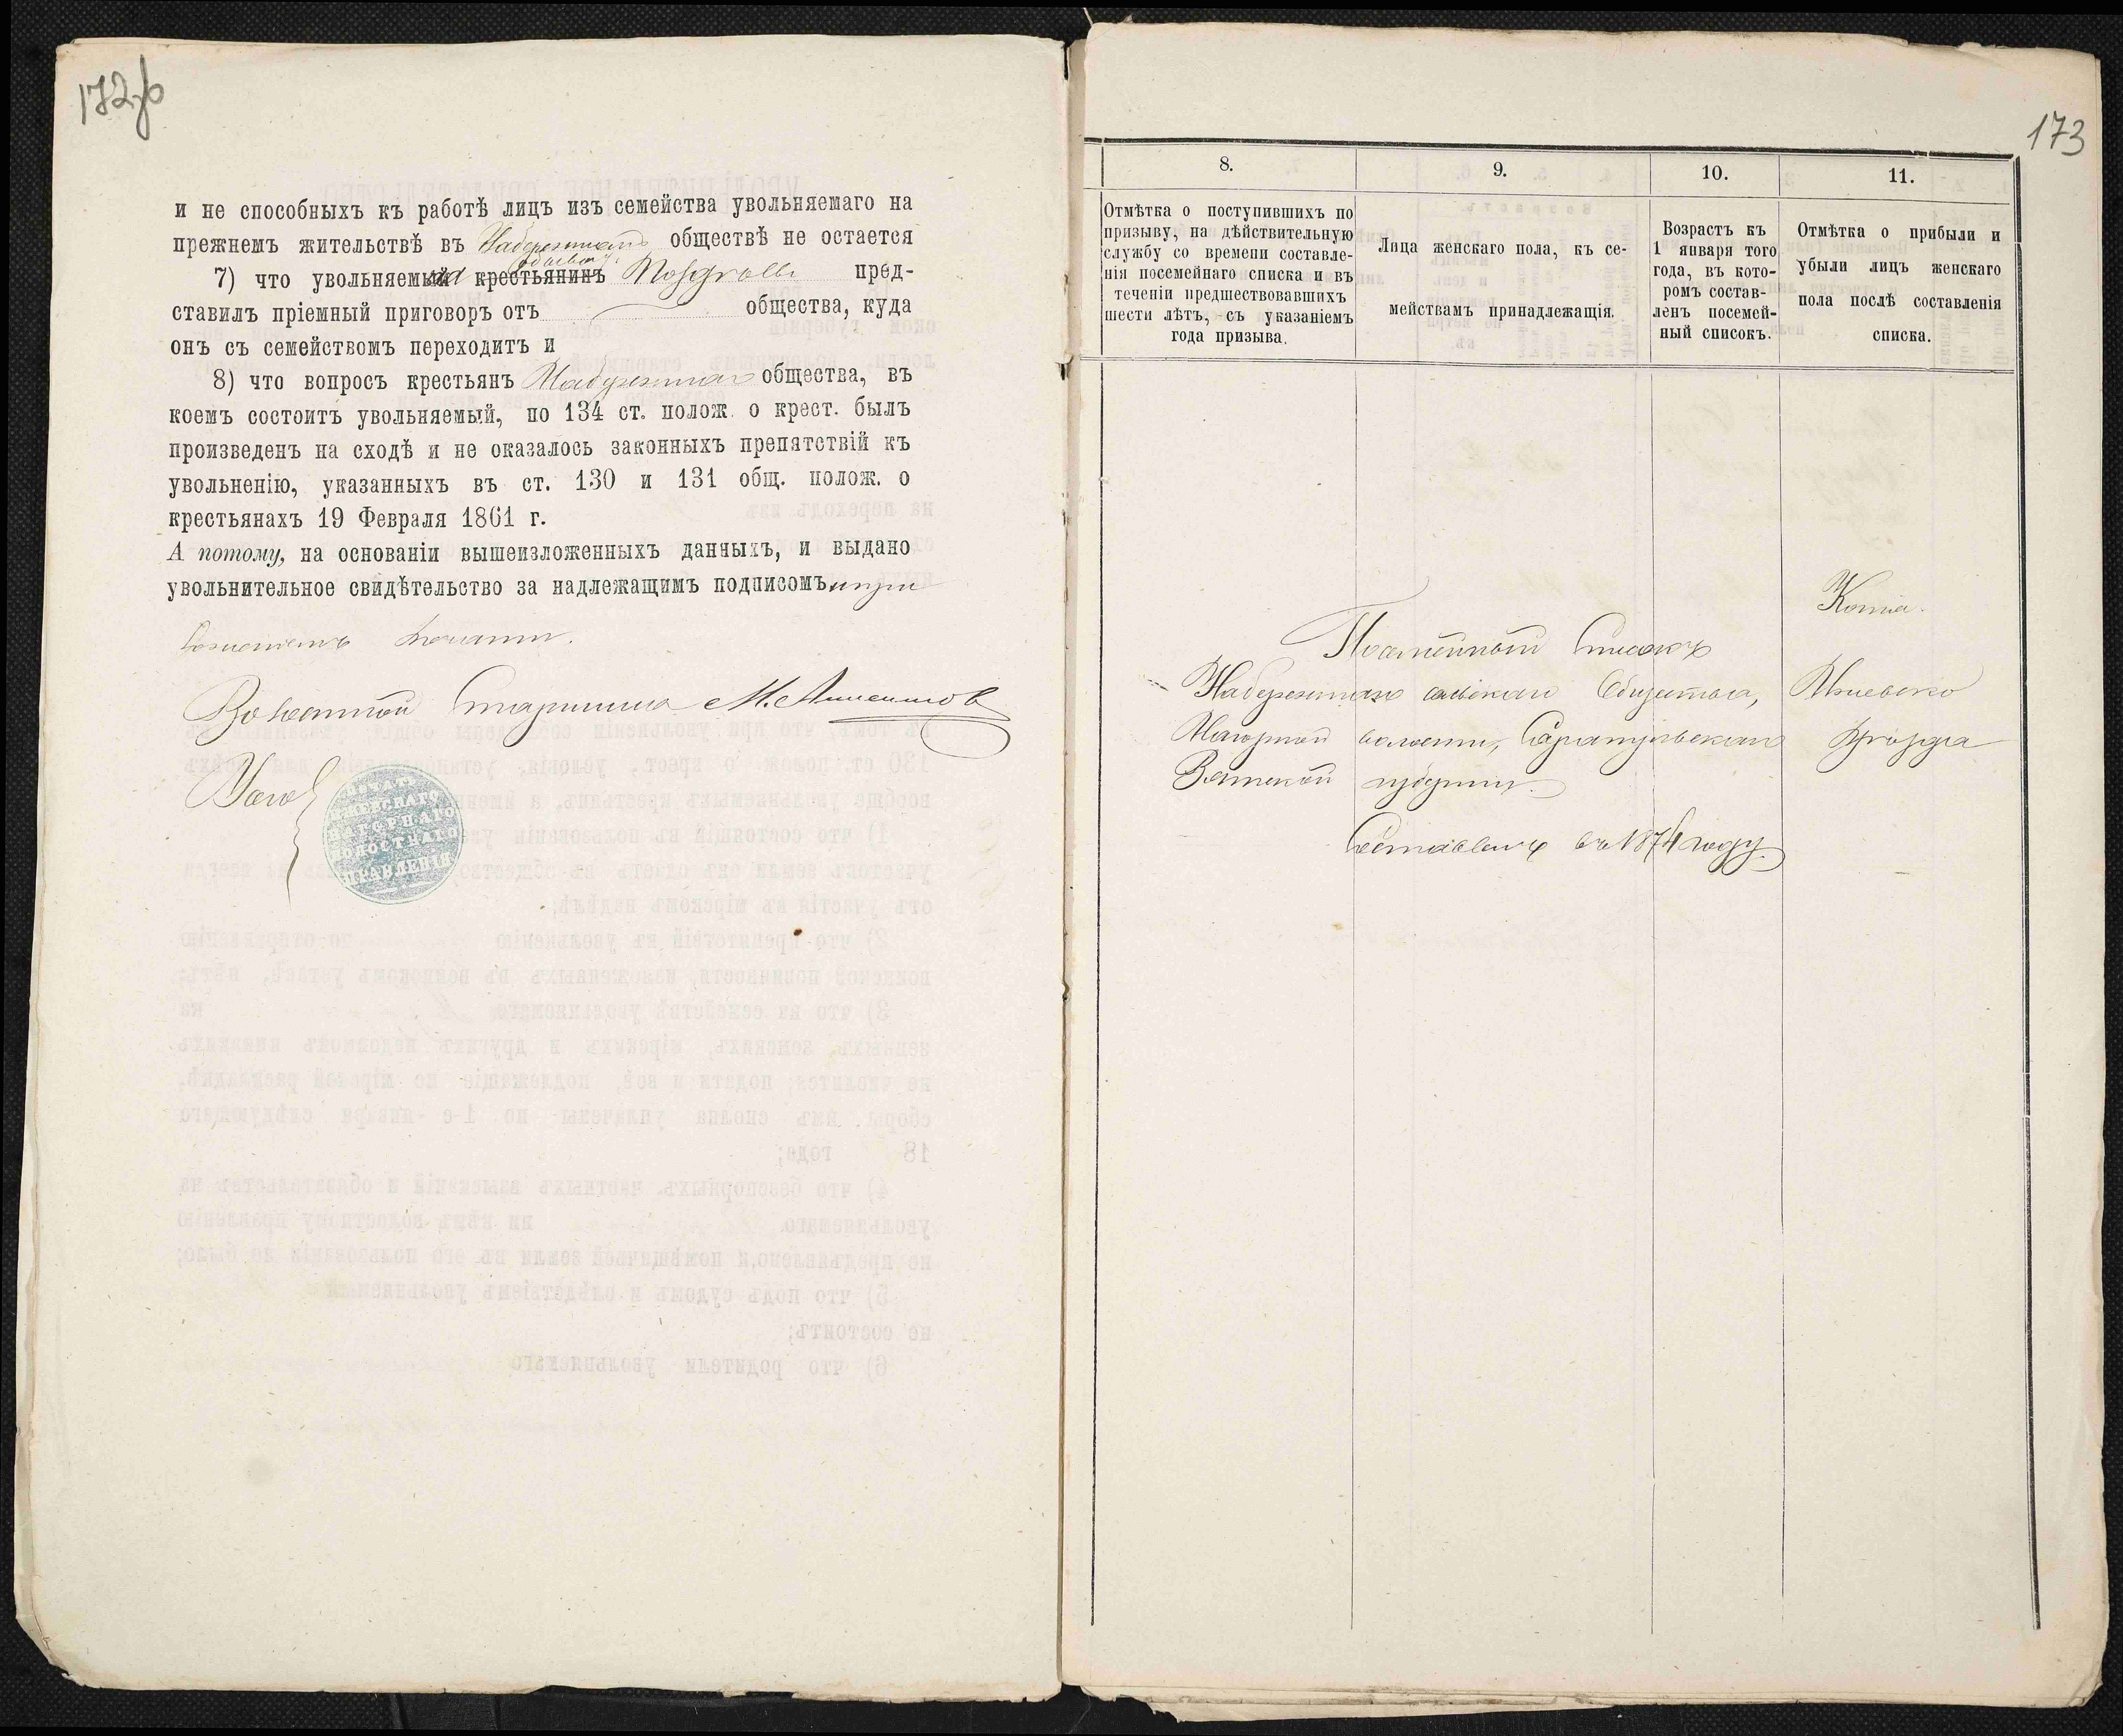 172об
и не способныхъ къ работѣ лицъ изъ семейства увольняемаго на
прежнемъ жительствѣ въ Набережномъ обществѣ не остается
7) что увольняемый крестьянинъ пред-
ставилъ пріемный приговоръ отъ общества, куда
онъ съ семействомъ переходитъ и
8) что вопросъ крестьянъ Набережнаго общества, въ
коемъ состоитъ увольняемый, по 134 ст. полож. о крест. былъ
произведенъ на сходѣ и не оказалось законныхъ препятствій къ
увольненію, указанныхъ въ ст. 130 и 131 общ. полож. о
крестьянахъ 19 Февраля 1861 г.
А потому, на основаніи вышеизложенныхъ данныхъ, и выдано
увольнительное свидѣтельство за надлежащимъ подписомъ и при
ложеніемъ печати.
Волостной Старшина М. Анисимовъ
ПЕЧАТЬ
ИЖЕВСКАГО
НАГОРНАГО
ВОЛОСТНАГО
ПРАВЛЕНІЯ
173
8.
9.
10.
11.
Отмѣтка о поступившихъ по
призыву, на дѣйствительную
службу со времени составле-
нія посемейнаго списка и въ
теченіи предшествовавшихъ
шести лѣтъ, съ указаніемъ
года призыва.
Лица женскаго пола, къ се-
мействамъ принадлежащія.
Возрастъ къ
1 января того
года, въ кото-
ромъ состав-
ленъ посемей-
ный списокъ.
Отмѣтка о прибыли и
убыли лицъ женскаго
пола послѣ составленія
списка.
Копія.
Посемейный Списокъ
Набережнаго сельскаго Общества, Ижевско
Нагорной волости, Сарапульскаго уѣзда
Вятской губерніи.
Составленъ въ 1874 году.